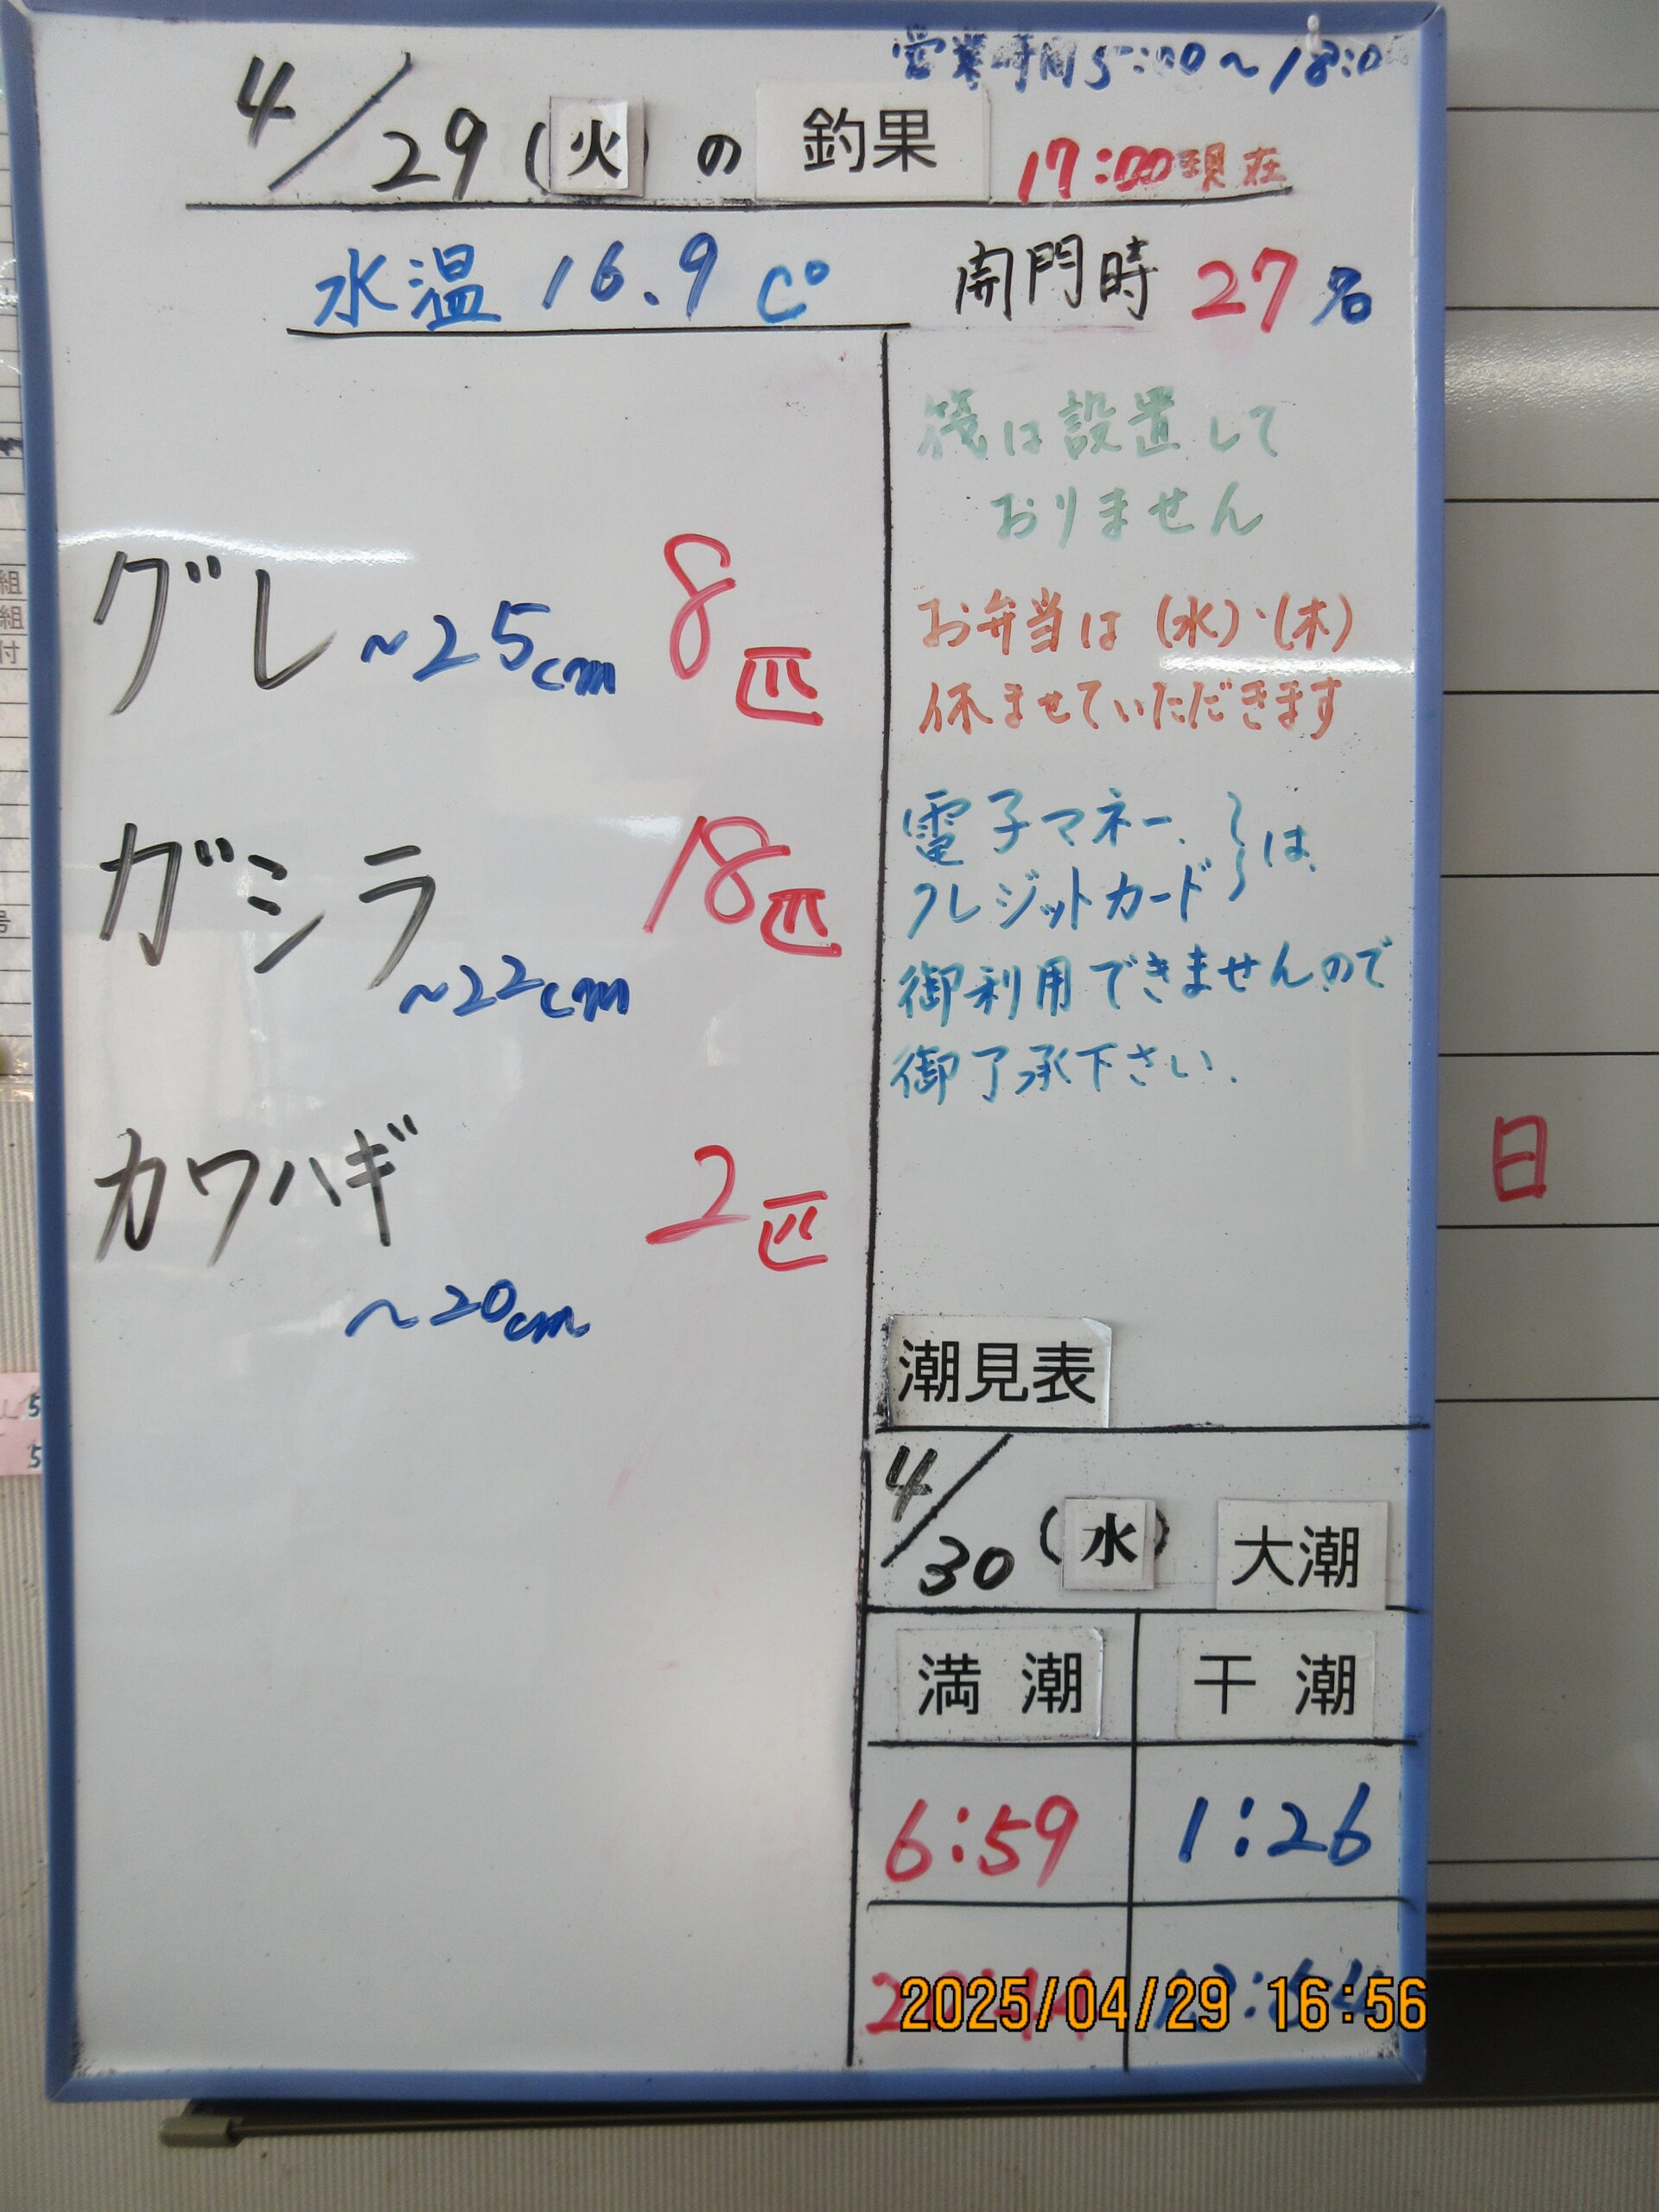 営業時間5:00～18:0
4/29(火)の釣果 17:00現在
水温 16.9 C° 開門時 27名
筏は設置して
おりません
お弁当は(水)・(木)
休ませていただきます
電子マネー、
クレジットカード は、
御利用できませんので
御了承下さい.
グレ ～25cm 8匹
ガシラ 18匹
～22cm
カワハギ 2匹
～20cm
潮見表
4/30(水) 大潮
満潮 干潮
6:59 1:26
2025/04/29 16:56
日
組
組
付
号
5
5